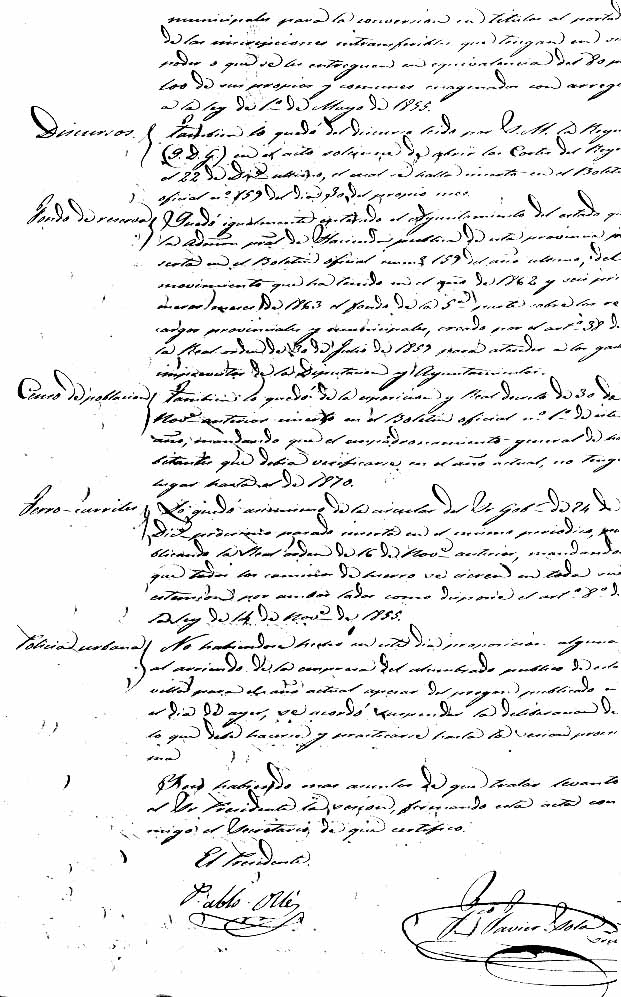 municipales para la conversion en titulos al portad
de las inscripciones intransferibles que tengan en su
poder o que se les entreguen en equivalencia del 80 p
100 de sus propios y comunes enagenados con arreg
a la ley de 1º de Mayo de 1855.
Discursos Tambien lo quedó del discurso leido por S. M. la Reyna
(Q. D. G.) en el acto solemne de abrir las Cortes del Reyn
el 22 de Dizº ultimo, el cual se halla inserto en el Boletin
oficial nº 159 del dia 30 del propio mes.
Fondo de reserva Quedó igualmente enterado el Ayuntamiento del estado q
la Admon pral de Hacienda publica de esta provincia
serta en el Boletin oficial num 159 del año ultimo, del
movimiento que ha tenido en el año de 1862 y seis pri
meros meses de 1863 el fondo de la 5ª parte sobre los re
cargos provinciales y municipales, creado por el artº 39 de
la Real orden de 30 de Julio de 1859 para atender a los gas
imprevistos de la Diputacion y Ayuntamientos.
Censo de poblacion Tambien lo quedó de la esposicion y Real decreto de 30 de
Novº anterior inserto en el Boletin oficial nº 1º de este
año, mandando que el empadronamiento general de ha
bitantes que debia verificarse en el año actual, no teng
lugar hasta el de 1870.
Ferro-carriles Lo quedó asimismo de la circular del Sr Gobr de 24 de
Dizº procsimo pasado inserta en el mismo periodico, pu
blicando la Real orden de 16 de Novº anterior, mandando
que todos los caminos de hierro se cierren en toda su
estension por ambos lados como dispone el artº 8º de
la ley de 14 de Novº de 1855.
Policia urbana No habiendose hecho en este dia proposicion alguna
al arriendo de la empresa del alumbrado publico de esta
villa para el año actual apesar del pregon publicado en
el dia de ayer, se acordó suspender la deliberacion de
lo que debe hacerse y practicarse hasta la sesion procsi
ma
Y no habiendo mas asuntos de que tratar levantó
el Sr Presidente la sesion, firmando esta acta con
migo el Secretario, de que certifico.
El Presidente
Pablo Ollé
Fco Javier Sola